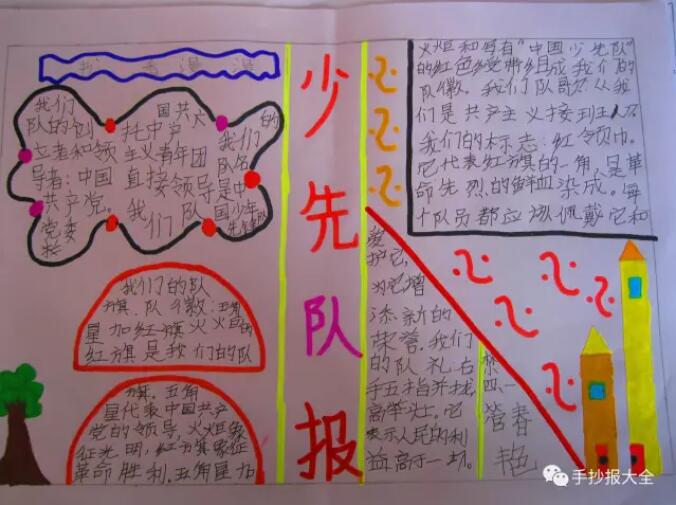 我们
队的创
立者和领
导者：中国
共产党。
党委
托中产
国共
主义青年团
直接领导
我们队
我们的
队名
是中
国少年
先锋队
我们的队
旗、队徽：五角
星加红旗火炬的
红旗是我们的队
旗。五角
星代表中国共产
党的领导，火炬象
征光明，红旗象征
革命胜利。五角星加
少先队报
火炬和写有“中国少先队”
的红色绶带组成我们的
队徽。我们队歌
们是共产主义接班人
我们的标志：红领巾。
它代表红旗的一角，是革
命先烈的鲜血染成。每
个队员都应该佩戴它和
爱
护它，
为它增
添新的
荣誉。我们
的队礼：右
手五指并拢，
高举头上。它
表示人民的利
益高于一切。
四、一
营春
艳
手抄报大全